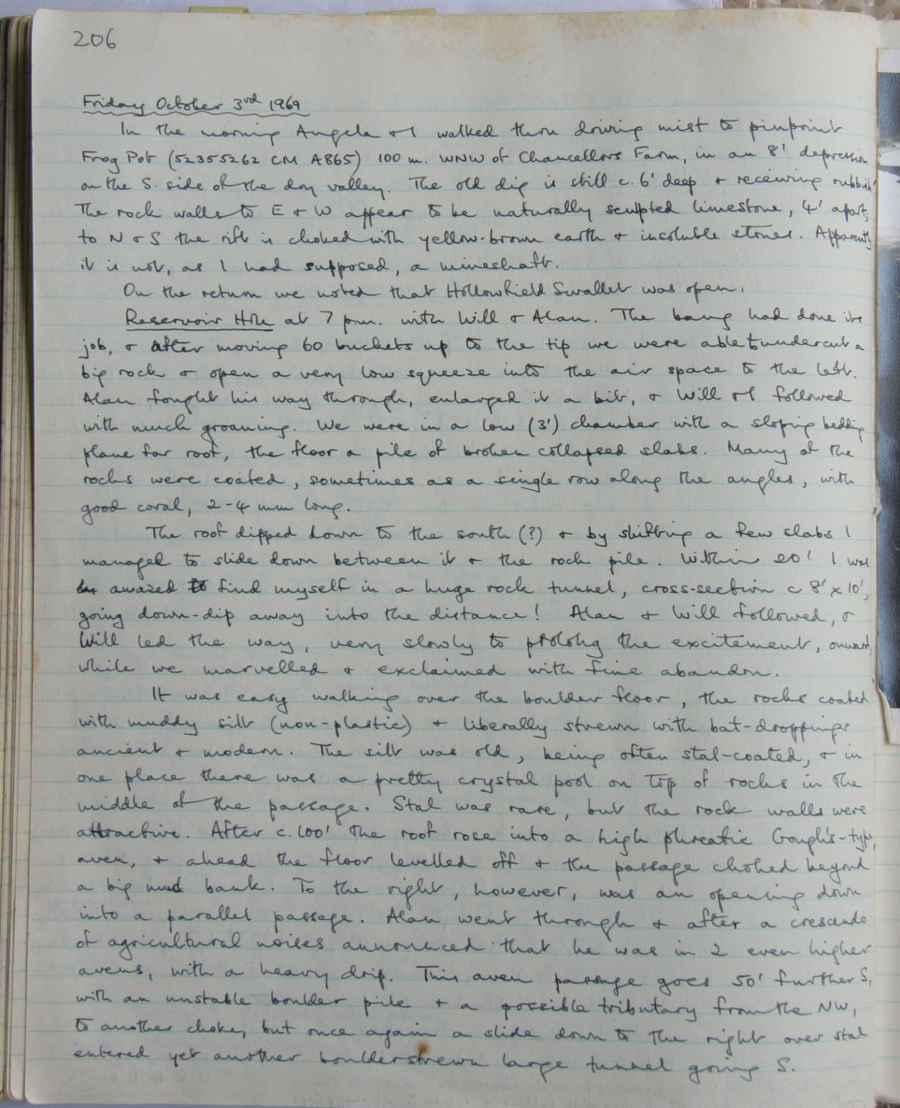 206
Friday October 3rd 1969
In the morning Angela & I walked thru driving mist to pinpoint
Frog Pot (52355262 CM A865) 100 m. WNW of Chancellors Farm, in an 8' depression
on the S. side of the dry valley. The old dig is still c. 6' deep & receiving rubbish.
The rock walls to E & W appear to be naturally sculpted limestone, 4' apart;
to N & S the rift is choked with yellow-brown earth & insoluble stones. Apparently
it is not, as I had supposed, a mineshaft.
On the return we noted that Hollowfield Swallet was open.
Reservoir Hole at 7 p.m. with Will & Alan. The bang had done its
job, & after moving 60 buckets up to the tip we were able to undercut a
big rock & open a very low squeeze into the air space to the left.
Alan fought his way through, enlarged it a bit, & Will & I followed
with much groaning. We were in a low (3') chamber with a sloping bedding
plane for roof, the floor a pile of broken collapsed slabs. Many of the
rocks were coated, sometimes as a single row along the angles, with
good coral, 2-4 mm long.
The roof dipped down to the south (?) & by shifting a few slabs I
managed to slide down between it & the rock pile. Within 20' I was
amazed to find myself in a huge rock tunnel, cross-section c 8' x 10',
going down-dip away into the distance! Alan & Will followed, &
Will led the way, very slowly to prolong the excitement, onward,
while we marvelled & exclaimed with fine abandon.
It was easy walking over the boulder floor, the rocks coated
with muddy silt (non-plastic) & liberally strewn with bat-droppings
ancient & modern. The silt was old, being often stal-coated, & in
one place there was a pretty crystal pool on top of rocks in the
middle of the passage. Stal was rare, but the rock walls were
attractive. After c. 100' the roof rose into a high phreatic Gough's-type
aven, & ahead the floor levelled off & the passage choked beyond
a big mud bank. To the right, however, was an opening down
into a parallel passage. Alan went through & after a crescendo
of agricultural noises announced that he was in 2 even higher
avens, with a heavy drip. This aven passage goes 50' further S,
with an unstable boulder pile & a possible tributary from the NW,
to another choke, but once again a slide down to the right over stal
entered yet another boulderstrewn large tunnel going S.